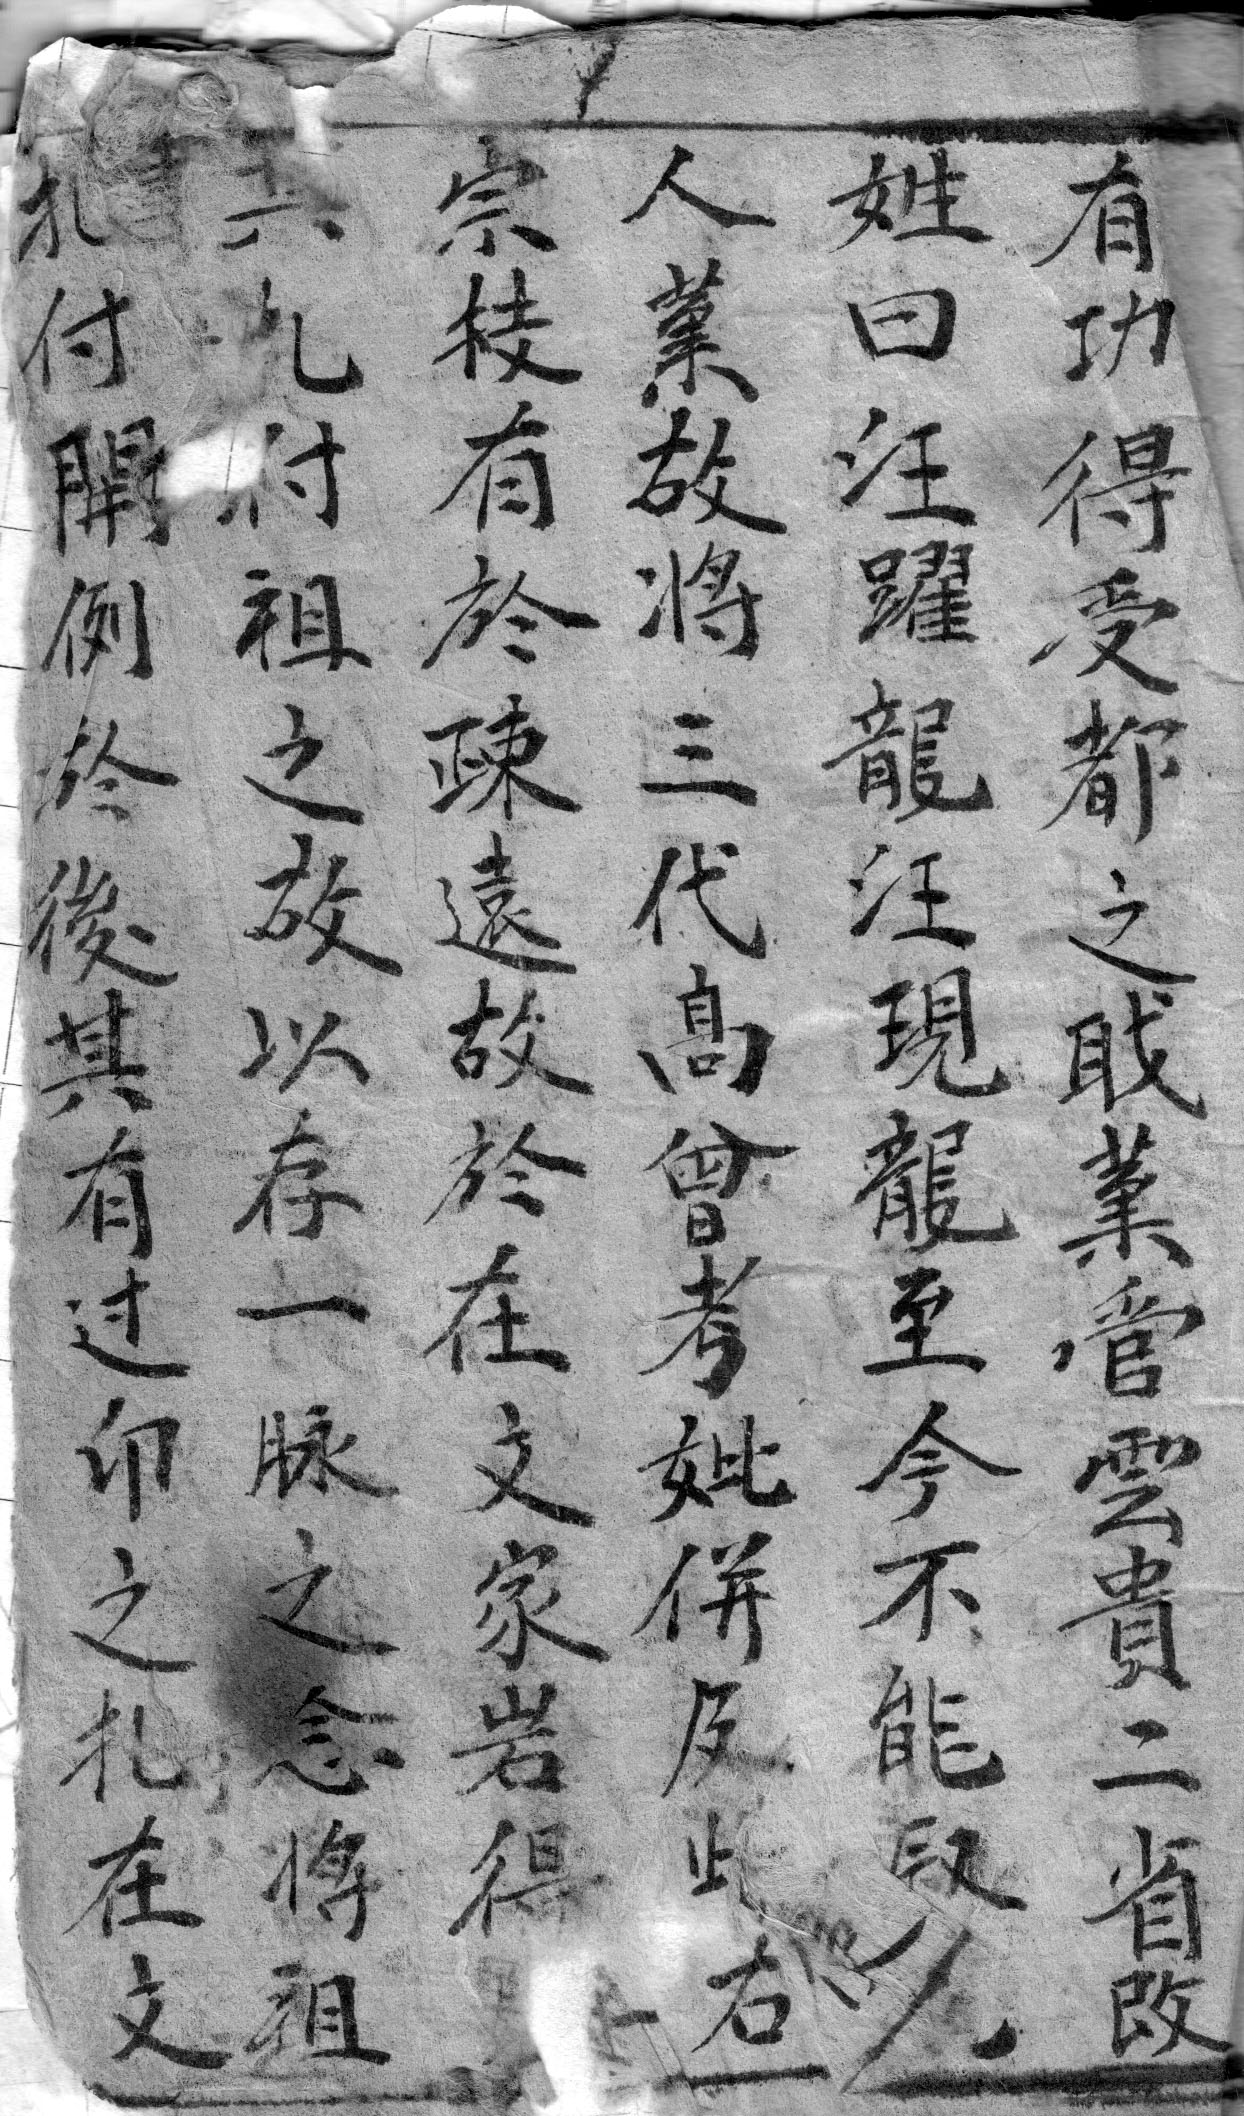 有功得受都之職業管雲貴二省改
姓曰汪躍龍汪現龍至今不能取
人業故將三代高曾考妣併及此右
宗枝有於疎遠故於在文家岩得
九付祖之故以存一脉之念將祖
札付開例於後其有过印之札在文